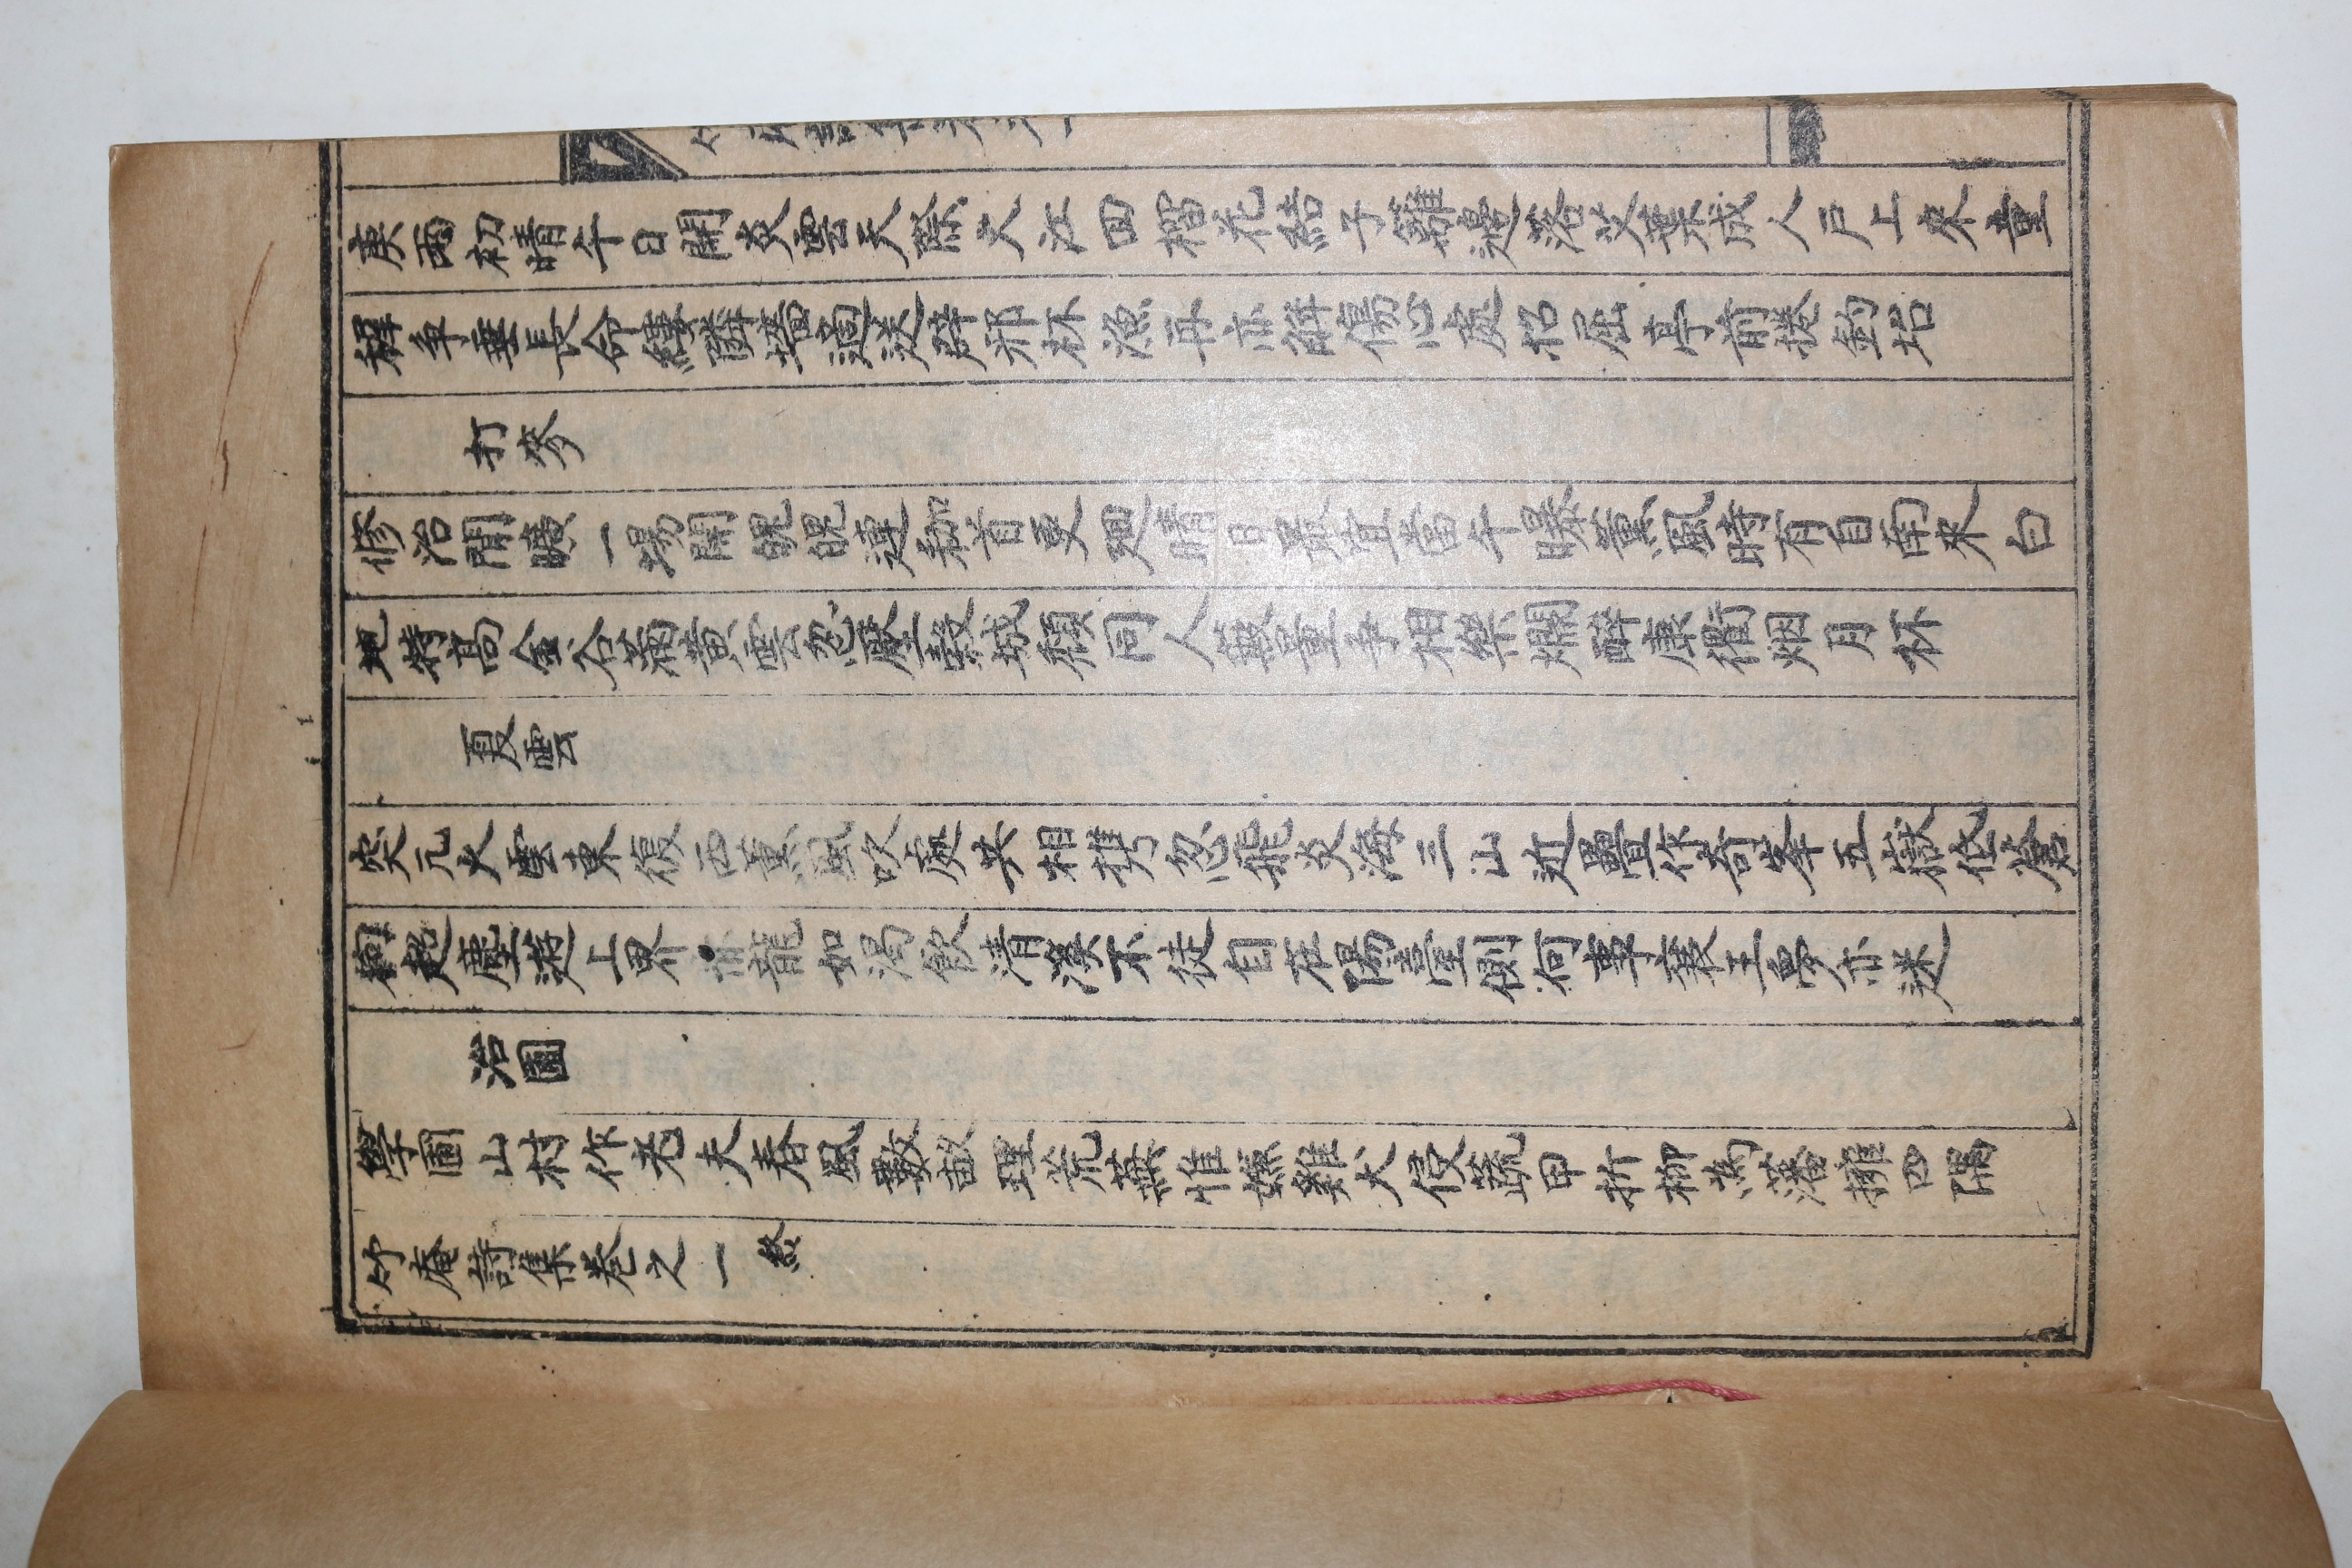 竹庵詩集卷之一
庚雨初晴午日開炎雲天際大江回榴花結子籬邊落艾葉成人戶上來童
穉争垂長命縷隣墻適送辟邪杯漁再亦解傷心處招屈亭前捲釣坮
打麥
修治閒曠一場開晛晛連耞首更廻晴日最宜當午曝薰風時有自南來白
地特高金谷萬黃雲忽壓穀城頹同人薮量争相樂爛醉康衢烟月杯
夏雲
突兀火雲東復西薰風吹處共相携忽飛炎海三山近疊作奇峯五嶽低蒼
狗起塵遊上界赤龍如渴飮清溪不徒自在陽臺側何事襄王夢亦迷
治圃
學圃山村作老夫春風數畝理荒蕪惟嫌雞犬侵蔬甲折柳為藩擁四隅
竹庵詩集卷之一 終